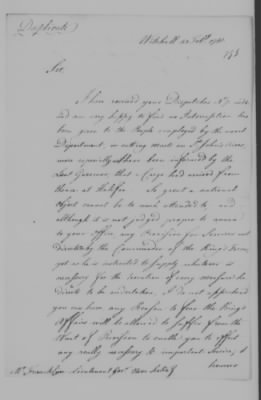 (Duplicate)
Whitehall 22 Feb. 1781.
Sir,
I have received your Dispatches No 7
and am very happy to find no Interruption has
been given to the People employed by the naval
Department, in cutting Masts on St John's River,
more especially as I have been informed by the
Lieut Governor, that a Cargo had arrived from
thence at Halifax. So great a national
object cannot be too much attended to and
although it is not judged proper to annex
to your office, any Provision for Services not
directed by the Commander of the King's Forces,
yet as he is instructed to supply whatever is
necessary for the execution of any measures he
directs to be undertaken. I do not apprehend
you can have any Reason to fear the King's
Affairs will be allowed to suffer from the
Want of Provision to enable you to effect
any really necessary & important Service,
Mr Francklin Lieutenant Gov. Nova Scotia